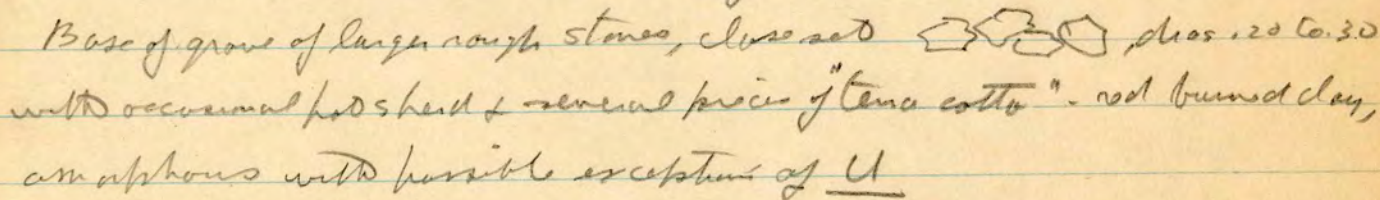 Base of grave of larger rough stones, close set , dias .20 to .30
with occasional potsherd & several pieces of "terra cotta" - red burned clay,
amorphous with possible exception of U